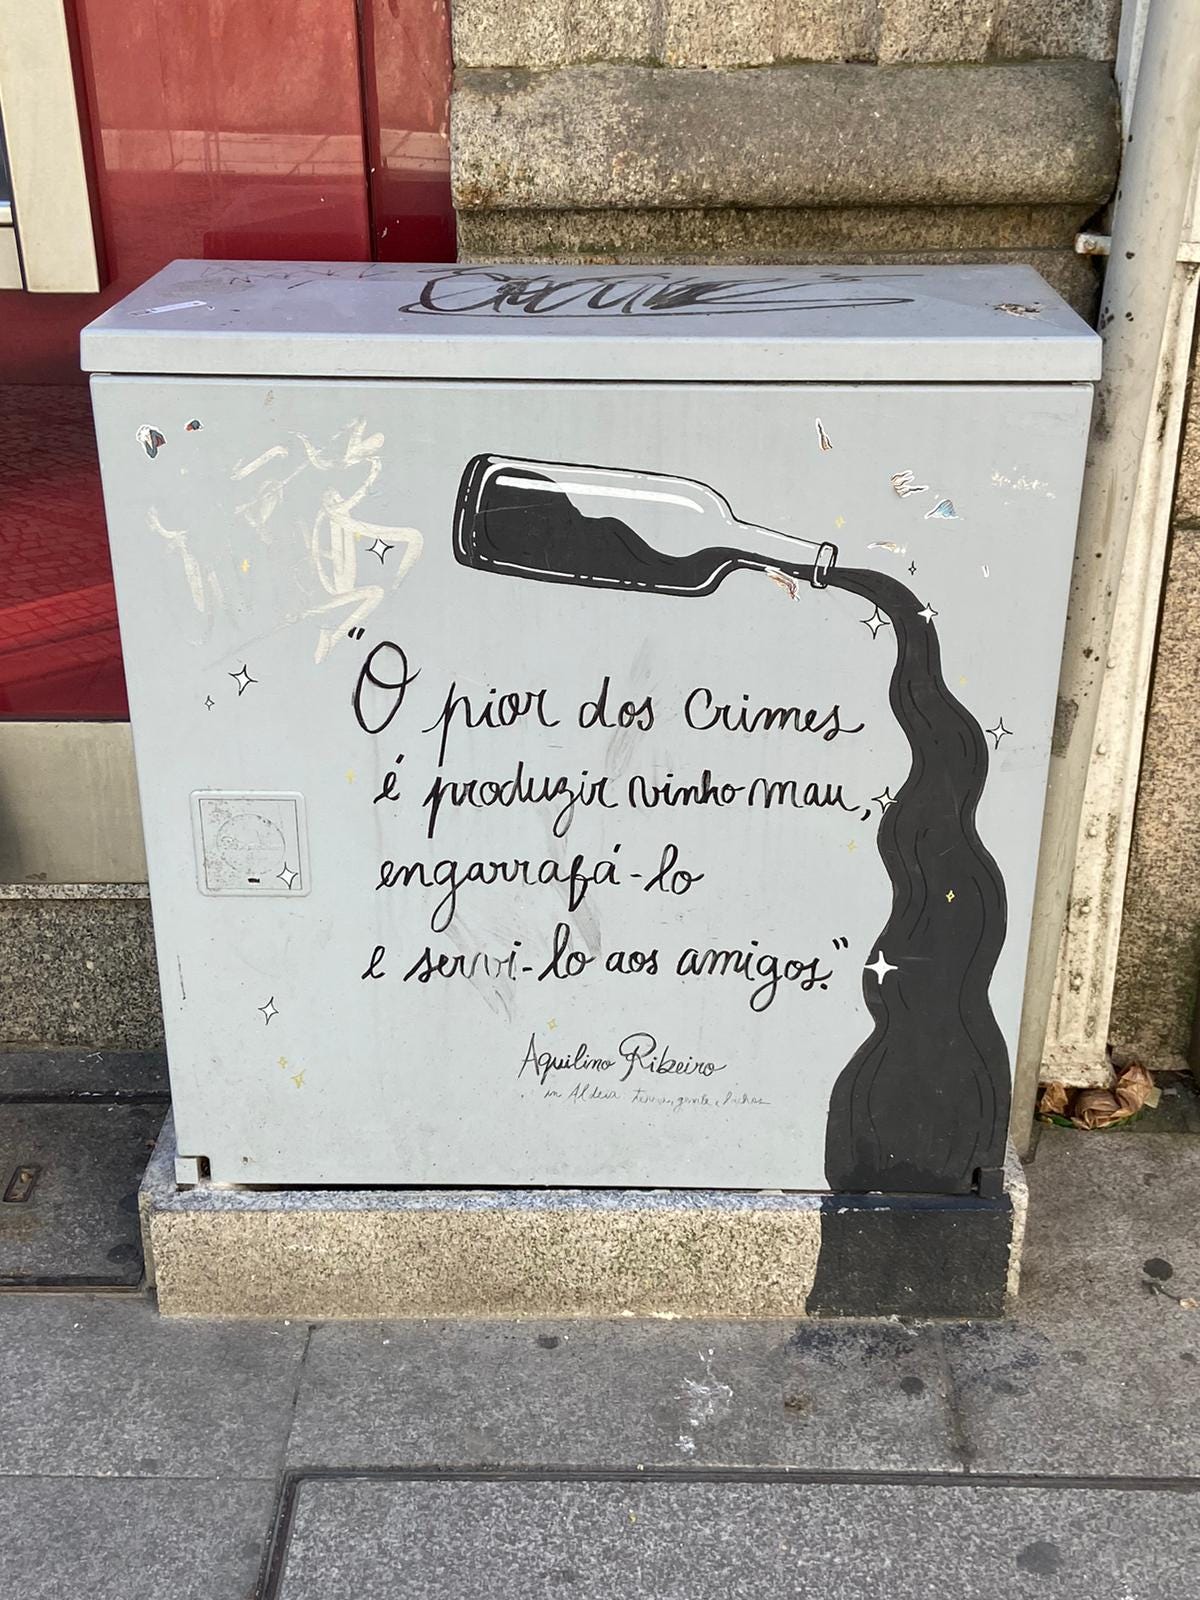 "O pior dos Crimes
é produzir vinho mau,
engarrafá-lo
e servi-lo aos amigos."
Aquilino Ribeiro
in Aldeia terra, gente e bichos